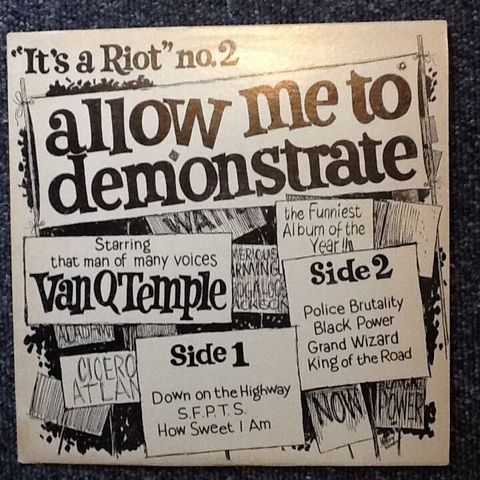 "It's a Riot" no.2
allow me to
demonstrate
the Funniest
Album of the
Year!!!
Starring
that man of many voices
Van Q Temple
Side 2
Police Brutality
Black Power
Grand Wizard
King of the Road
Side 1
Down on the Highway
S.F.P.T.S.
How Sweet I Am
CICERO
NOW
POWER